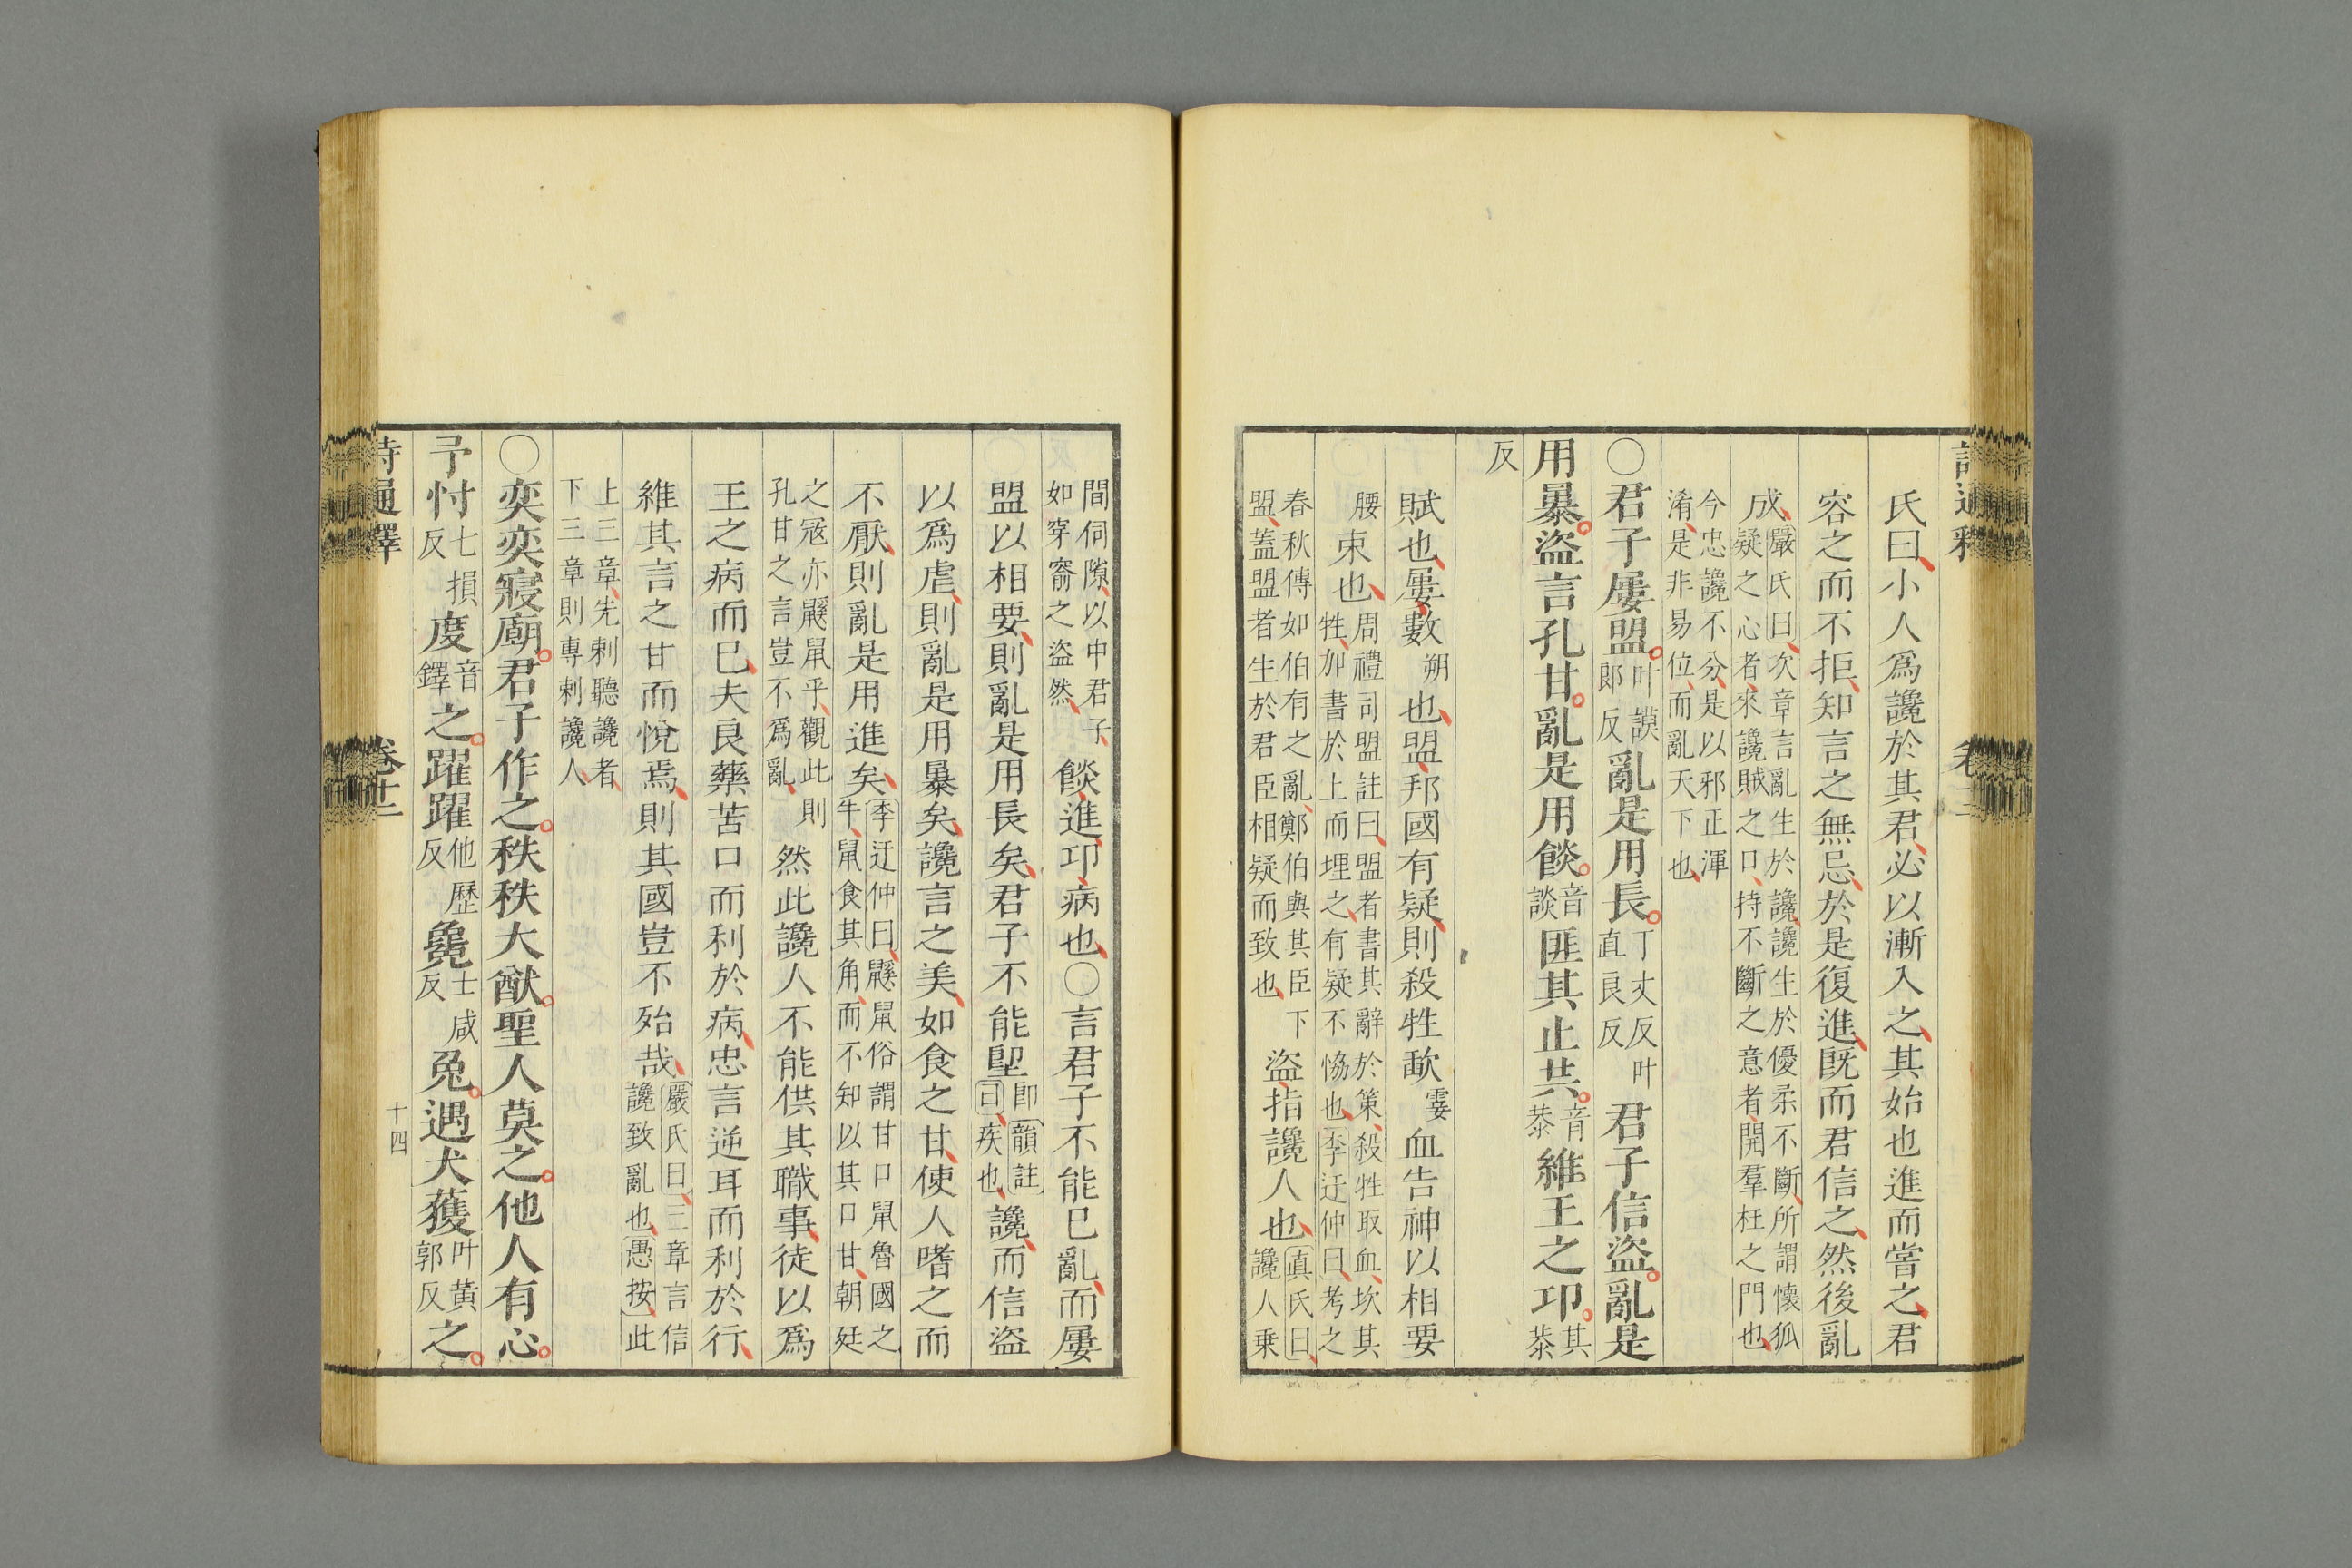 氏曰小人爲讒於其君必以漸入之其始也進而嘗之君
容之而不拒知言之無忌於是復進旣而君信之然後亂
成嚴氏曰次章言亂生於讒讒生於優柔不斷所謂懷狐
疑之心者來讒賊之口持不斷之意者開羣枉之門也
今忠讒不分是以邪正渾
淆是非易位而亂天下也
〇君子屢盟叶謨郞反亂是用長丁丈反叶直良反君子信盜亂是
用暴盜言孔甘亂是用餤音談匪其止共音恭維王之卭其恭
反
賦也屢數朔也盟邦國有疑則殺牲歃霎血告神以相要
腰束也周禮司盟註曰盟者書其辭於策殺牲取血坎其
牲加書於上而埋之有疑不恊也李迂仲曰考之
春秋傳如伯有之亂鄭伯與其臣下盜指讒人也眞氏曰
盟蓋盟者生於君臣相疑而致也讒人乗
間伺隙以中君子
如穿窬之盜然餤進卭病也〇言君子不能已亂而屢
盟以相要則亂是用長矣君子不能堲卽韻註曰疾也讒而信盜
以爲虐則亂是用暴矣讒言之美如食之甘使人嗜之而
不厭則亂是用進矣李迂仲曰鼷鼠俗謂甘口鼠魯國之
牛鼠食其角而不知以其口甘朝廷
之寇亦鼷鼠乎觀此則
孔甘之言豈不爲亂然此讒人不能供其職事徒以爲
王之病而已夫良藥苦口而利於病忠言逆耳而利於行
維其言之甘而悅焉則其國豈不殆哉嚴氏曰三章言信
讒致亂也愚按此
上三章先刺聽讒者
下三章則專刺讒人
〇奕奕寢廟君子作之秩秩大猷聖人莫之他人有心
予忖七損反度音鐸之躍躍他歷反毚士咸反兔遇犬獲叶黃郭反之
詩通釋 卷十二 十四